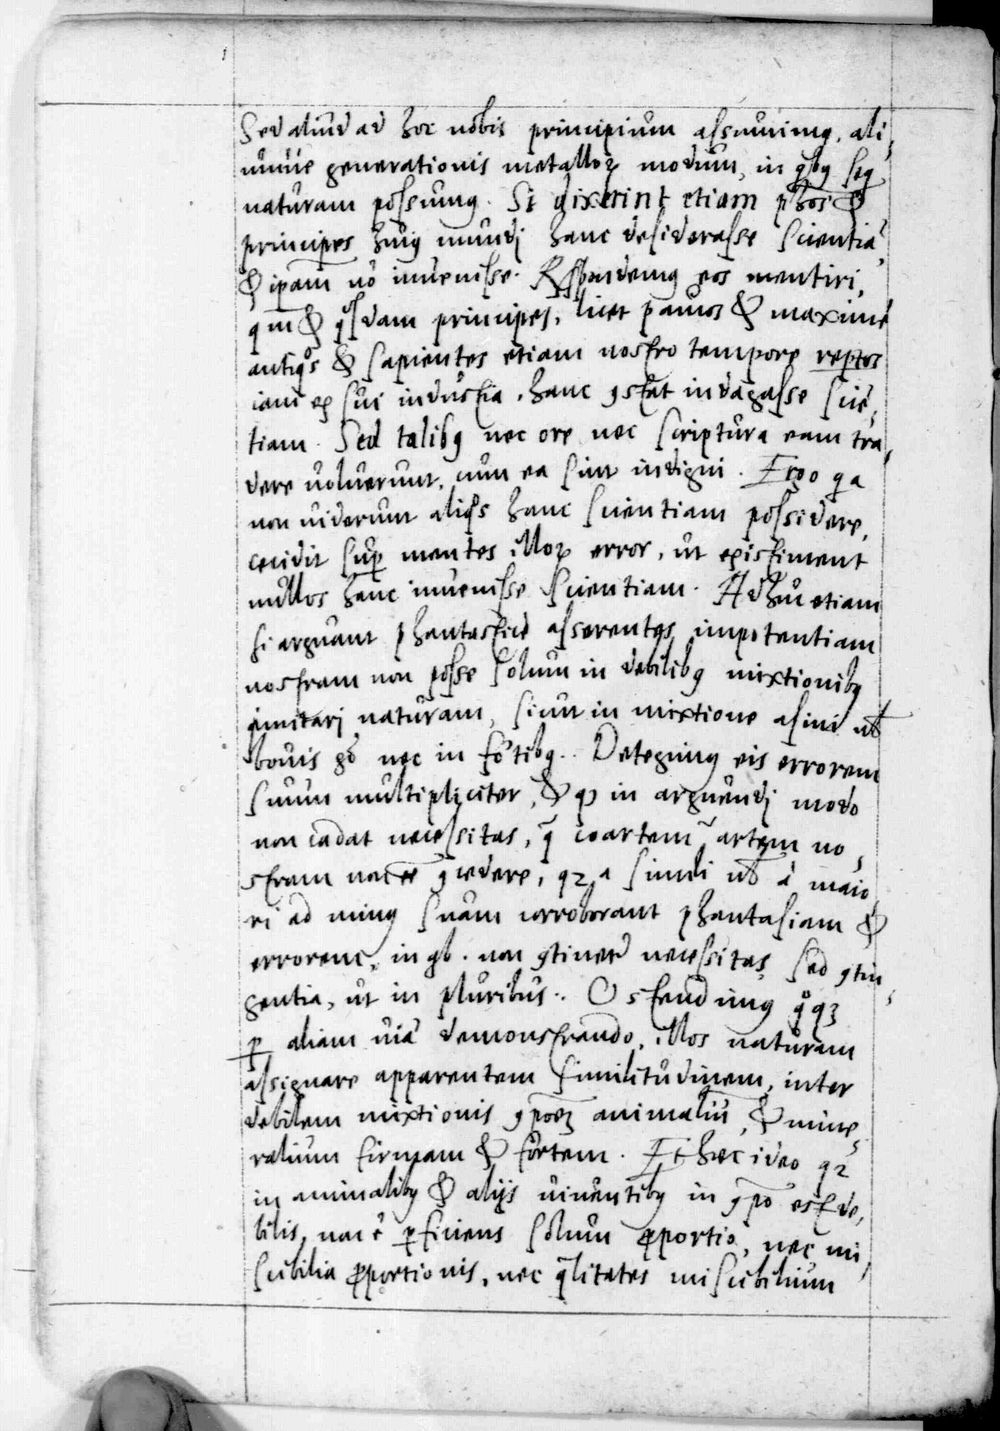 Sed aliud ad hoc nobis principium assumimus, ali-
unde generationis metalloꝝ modum, in qbꝰ seq
naturam possumus. Si dixerint etiam phos &
principes huiꝰ mundj hanc desiderasse scientiā
& ipam nō invenisse. Respondemus eos mentiri,
qm & qsdam principes, licet paucos & maxime
antiqos & sapientes etiam nostro tempore reptos
iam ex sui industria, hanc ꝯstat indagasse scie-
tiam. Sed talibꝰ nec ore nec scriptura eam tra-
dere voluerunt, cum ea sint indigni. Ergo qa
non viderunt aliqs hanc scientiam possidere,
cecidit sup mentes illoꝝ error, ut existiment
nullos hanc invenisse scientiam. Adhuc etiam
si arguant phantasticè asserentes impotentiam
nostram non posse solum in debilibꝰ mixtionibꝰ
imitarj naturam, sicut in mixtione asini ul
bovis gº nec in fortibꝰ. Detegimus eis errorem
suum multipliciter, & qꝫ in arguendj modo
non cadat necessitas, q̄ coartem artem no-
stram ꝯcedere, qꝛ a simili ul à maio-
ri ad minus suam corroborant phantasiam &
errorem, in qb. non ꝯtinetr necessitas sed ꝯtin-
gentia, ut in pluribus. Ostendimus qoqꝫ
ꝑ aliam viā demonstrando, illos naturam
assignare apparentem similitudinem, inter
debilem mixtionis ꝯpoez animaliū, & mine-
ralium firmam & fortem. Et hæc ideo qꝛ
in animalibꝰ & alijs viventibꝰ in ꝯpo est de-
bilis, nō ē ꝑficiens solum ꝓportio, nec mi-
scibilia ꝓportionis, nec qlitates miscibilium